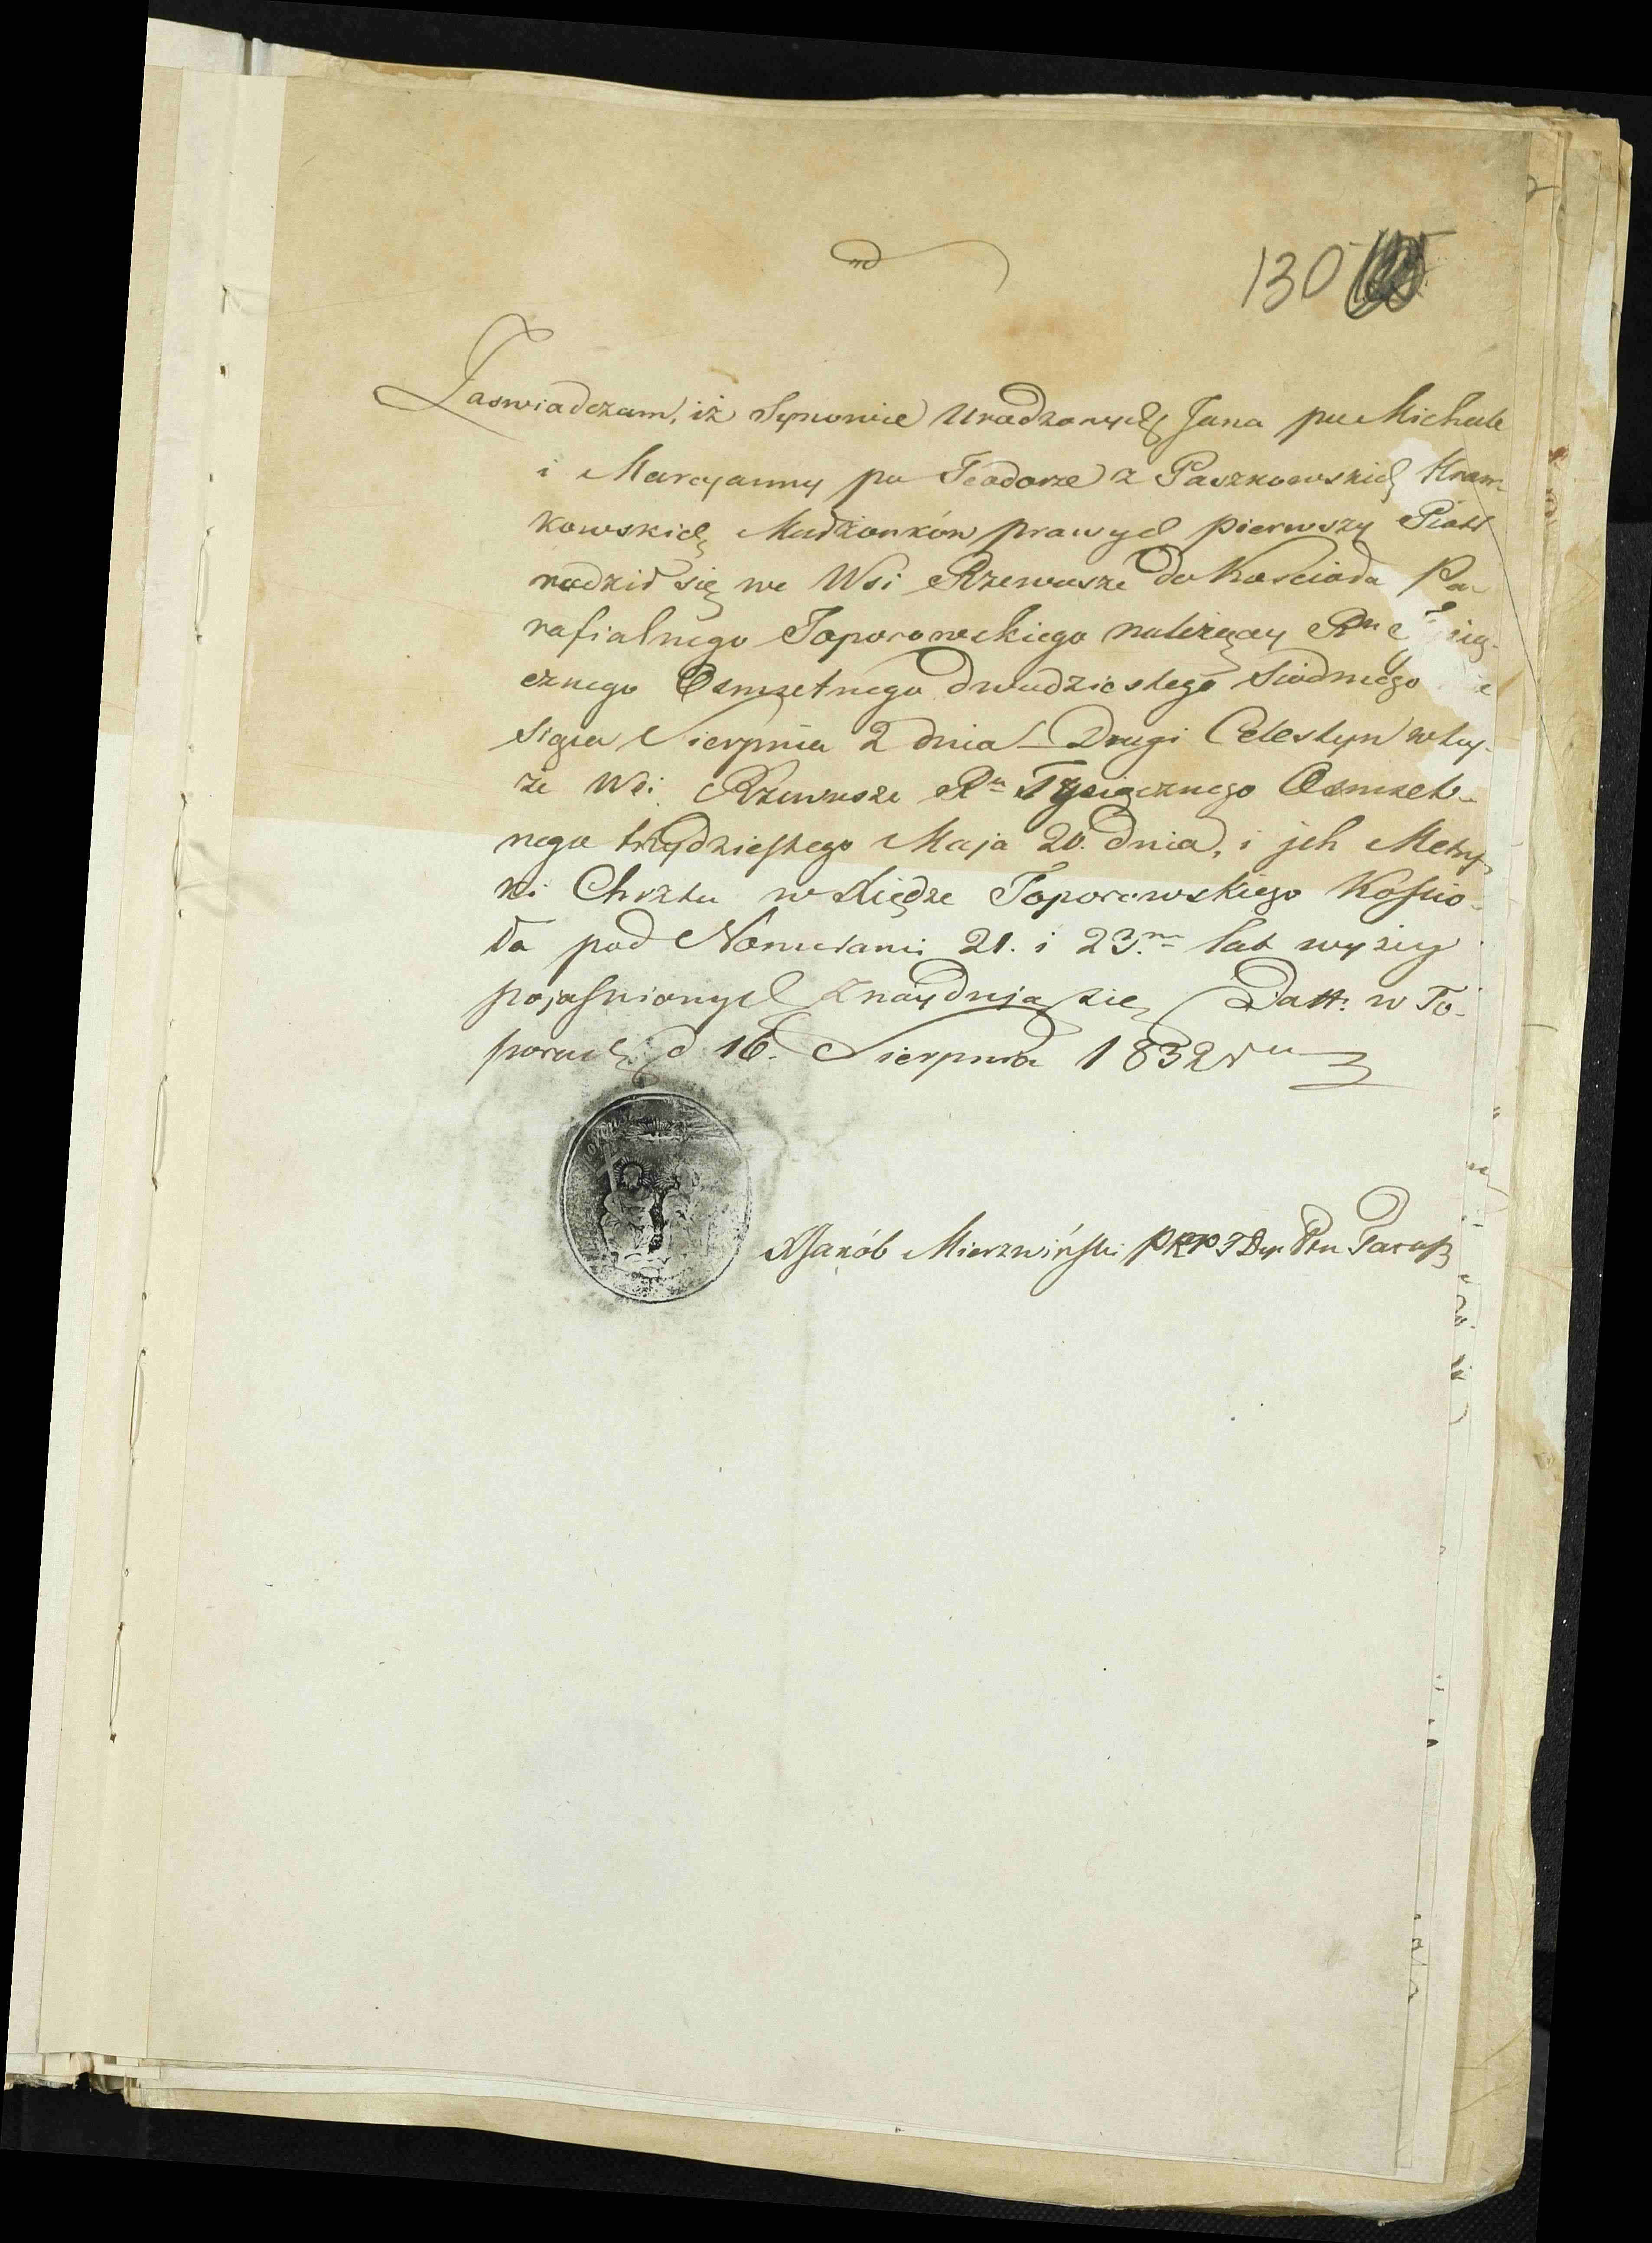 130
Zaswiadczam, iż Synowie Urodzonych Jana po Michale
i Maryanny po Teodorze z Paszkowskich Kram-
kowskich Małżonków prawych pierwszy Piotr
rodził się we Wsi Rzewusze do Koscioła Pa-
rafialnego Toporowskiego należącey Ru
cznego Osmsetnego dwudziestego Siodmego
siąca Sierpnia 2 dnia – Drugi Celestyn w tey-
że Wsi Rzewusze Ru Tysiącznego Osmset-
nego trzydziestego Maja 20. dnia, i jch Metry-
ki Chrztu w Xiędze Toporowskiego Kościo-
ła pod Numerami 21. i 23.m lat wyżey
pojaśnionych znaydują się Datt: w To-
porach d 16. Sierpnia 1832 ru
X Jakób Mierzwiński